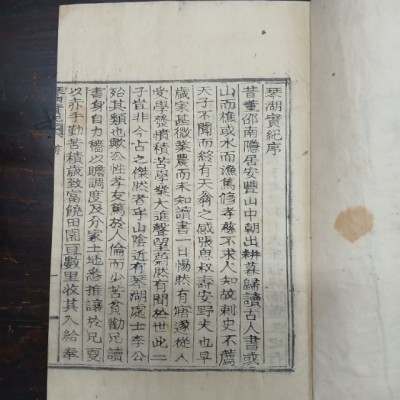 琴湖實紀序
昔董邵南隱居安豐山中朝出耕暮歸讀古人書或
山而樵或水而漁篤修孝慈不求人知故刺史不薦
天子不聞而終有天翁之感張思叔壽安野夫也早
歲家甚微業農而未知讀書一日惕然有寤遂從人
受學發憤積苦學業大進聲望蔚然有聞於世此二
子豈非今古之傑然者乎山陰近有琴湖處士李公
始其類也歟公性孝友篤於人倫而少苦貧勸兄讀
書身自力穡以贍調度及分家土地悉推讓於兄更
以赤手勤苦積歲致富饒田園亘數里收其入給奉